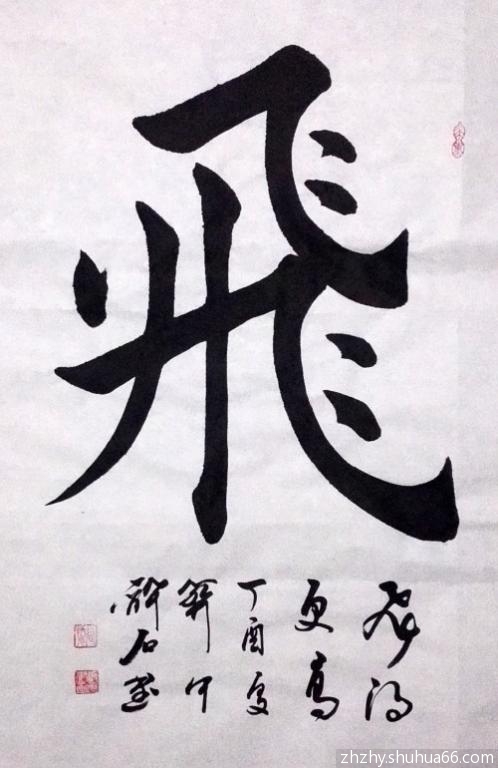 飛
飛得
更高
丁酉夏
中
石書
zhzhy.shuhua66.com